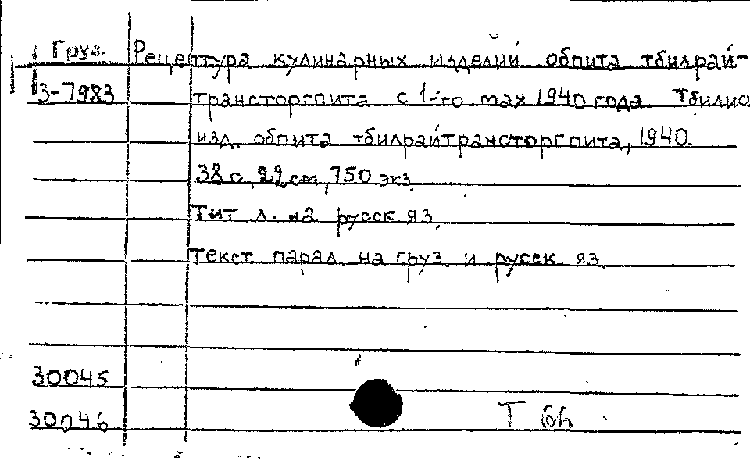 Груз. Рецептура кулинарных изделий обпита тбилрай-
3-7983 трансторгпита с 1-го мая 1940 года. Тбилис
изд. обпита тбилрайтрансторгпита, 1940.
38 с. 22 см, 750 экз.
Тит. л. на русск. яз.
Текст парал. на груз. и русск. яз.
30045
30046